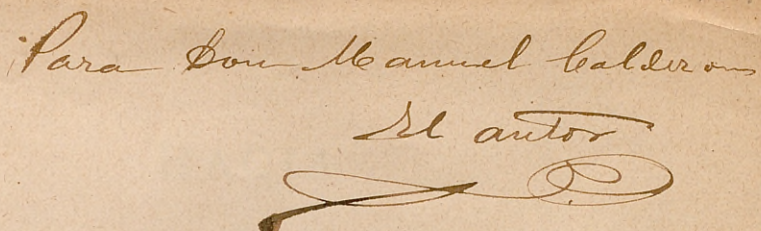 Para Don Manuel Calderon
El autor